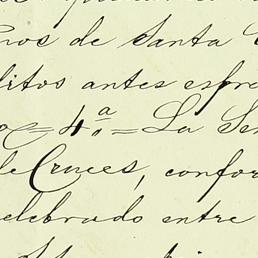 nos de Santa
ritos antes espre
o = 4.ª = La Se
de Cruces, confor
elebrado entre